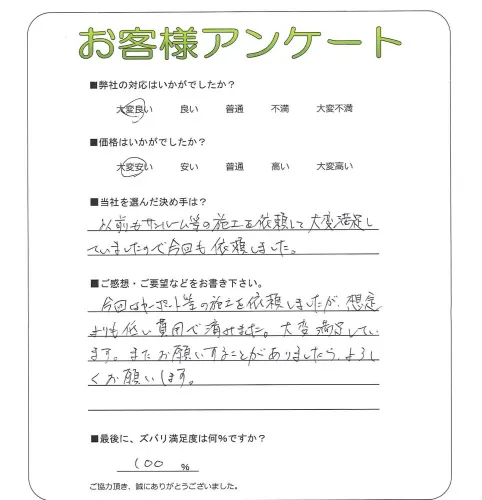 お客様アンケート
■弊社の対応はいかがでしたか？
大変良い 良い 普通 不満 大変不満
■価格はいかがでしたか？
大変安い 安い 普通 高い 大変高い
■当社を選んだ決め手は？
以前もサンルーム等の施工を依頼して大変満足し
ていましたので今回も依頼しました。
■ご感想・ご要望などをお書き下さい。
今回はカーポート等の施工を依頼しましたが、想定
よりも低い費用で済みました。大変満足してい
ます。またお願いすることがありましたら、よろし
くお願いします。
■最後に、ズバリ満足度は何％ですか？
100 ％
ご協力頂き、誠にありがとうございました。